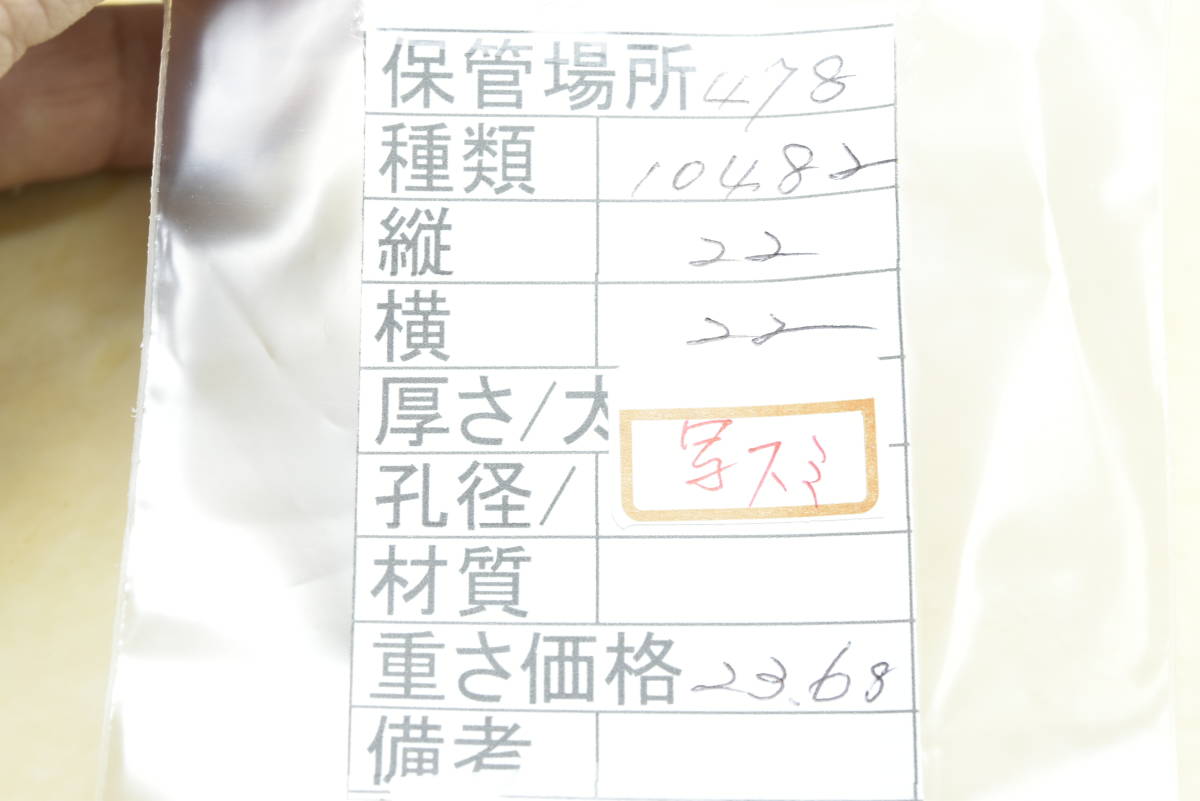 保管場所 478
種類 10482
縦 22
横 22
厚さ/太
孔径/
写スミ
材質
重さ価格 23.68
備考